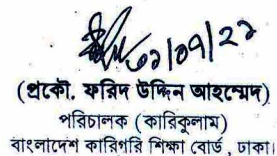 ৩১/০৭/২২
(প্রকৌ. ফরিদ উদ্দিন আহম্মেদ)
পরিচালক (কারিকুলাম)
বাংলাদেশ কারিগরি শিক্ষা বোর্ড, ঢাকা।